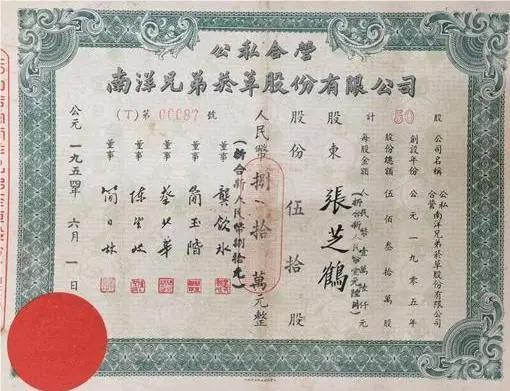 公私合營
南洋兄弟菸草股份有限公司
計 50 股
公司名稱 公私合營南洋兄弟菸草股份有限公司
創設年份 公元一九零五年
股份總額 伍佰叁拾萬股
每股金額 人民幣壹萬陸仟元
(折合新人民幣壹元陸角)
股東 張芝鶴
股份 伍拾股
人民幣捌拾萬元整
(折合新人民幣捌拾元)
(丁)第 00087 號
董事 龔飲冰
董事 簡玉階
董事
董事
董事 簡日林
公元一九五四年六月一日